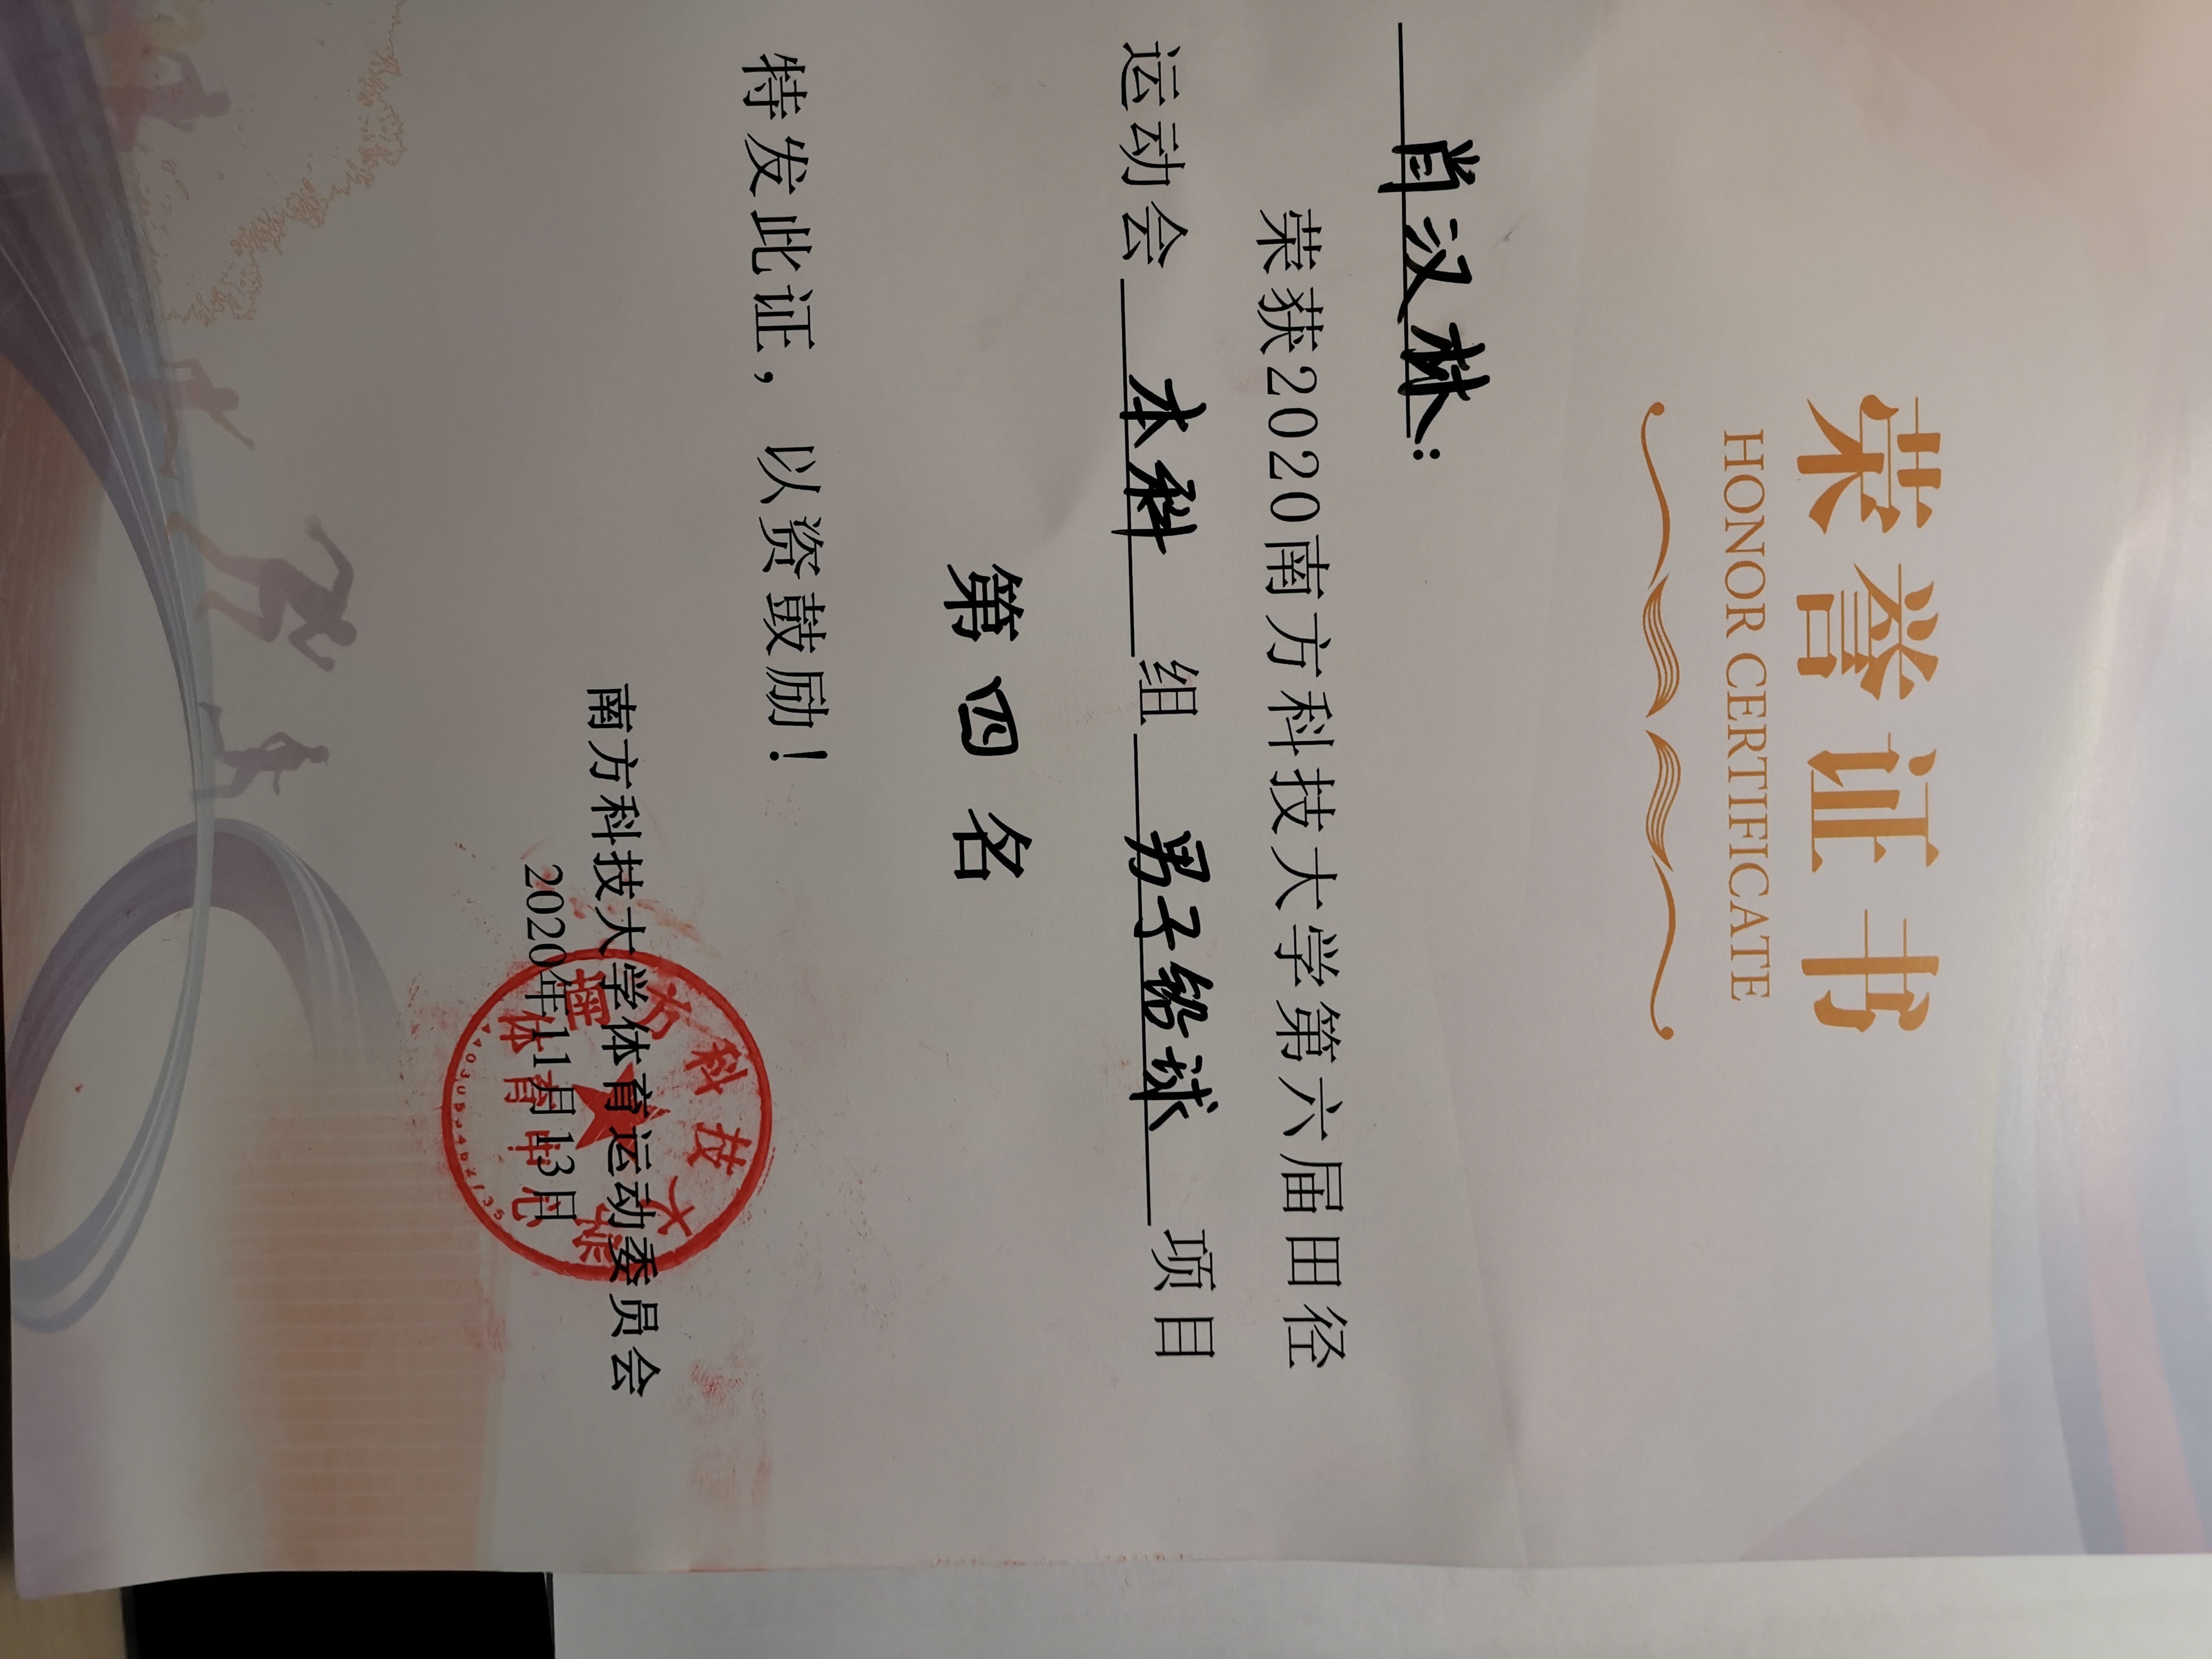 荣誉证书
HONOR CERTIFICATE
肖汉林：
荣获2020南方科技大学第六届田径
运动会 本科 组 男子铅球 项目
第四名
特发此证，以资鼓励！
南方科技大学体育运动委员会
2020年11月13日
南方科技大学
体育中心